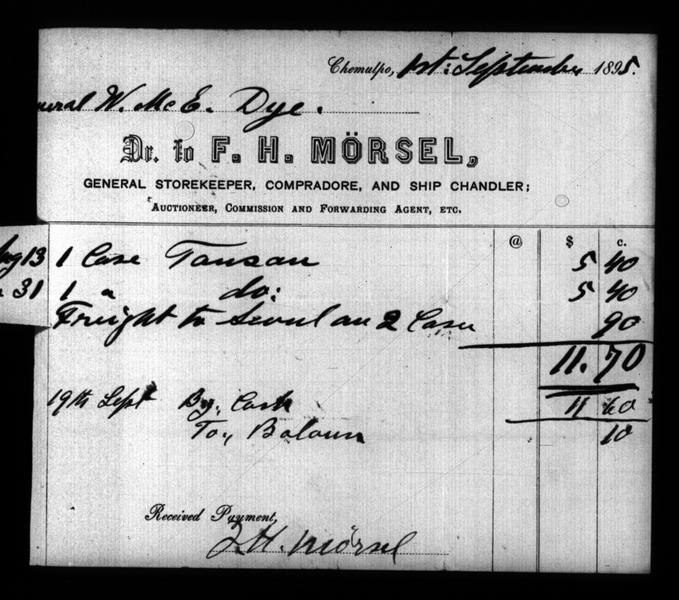 Chemulpo, 1st: September 1895.
neral W. Mc E. Dye.
Dr. to F. H. MÖRSEL,
GENERAL STOREKEEPER, COMPRADORE, AND SHIP CHANDLER;
AUCTIONEER, COMMISSION AND FORWARDING AGENT, ETC.
@ $ c.
Aug 13 1 Case Tansan 5 40
" 31 1 " do: 5 40
Freight to Seoul on 2 Case 90
11.70
19th Sept By, Cash 11 60
To, Balance 10
Received Payment,
F. H. Mörsel